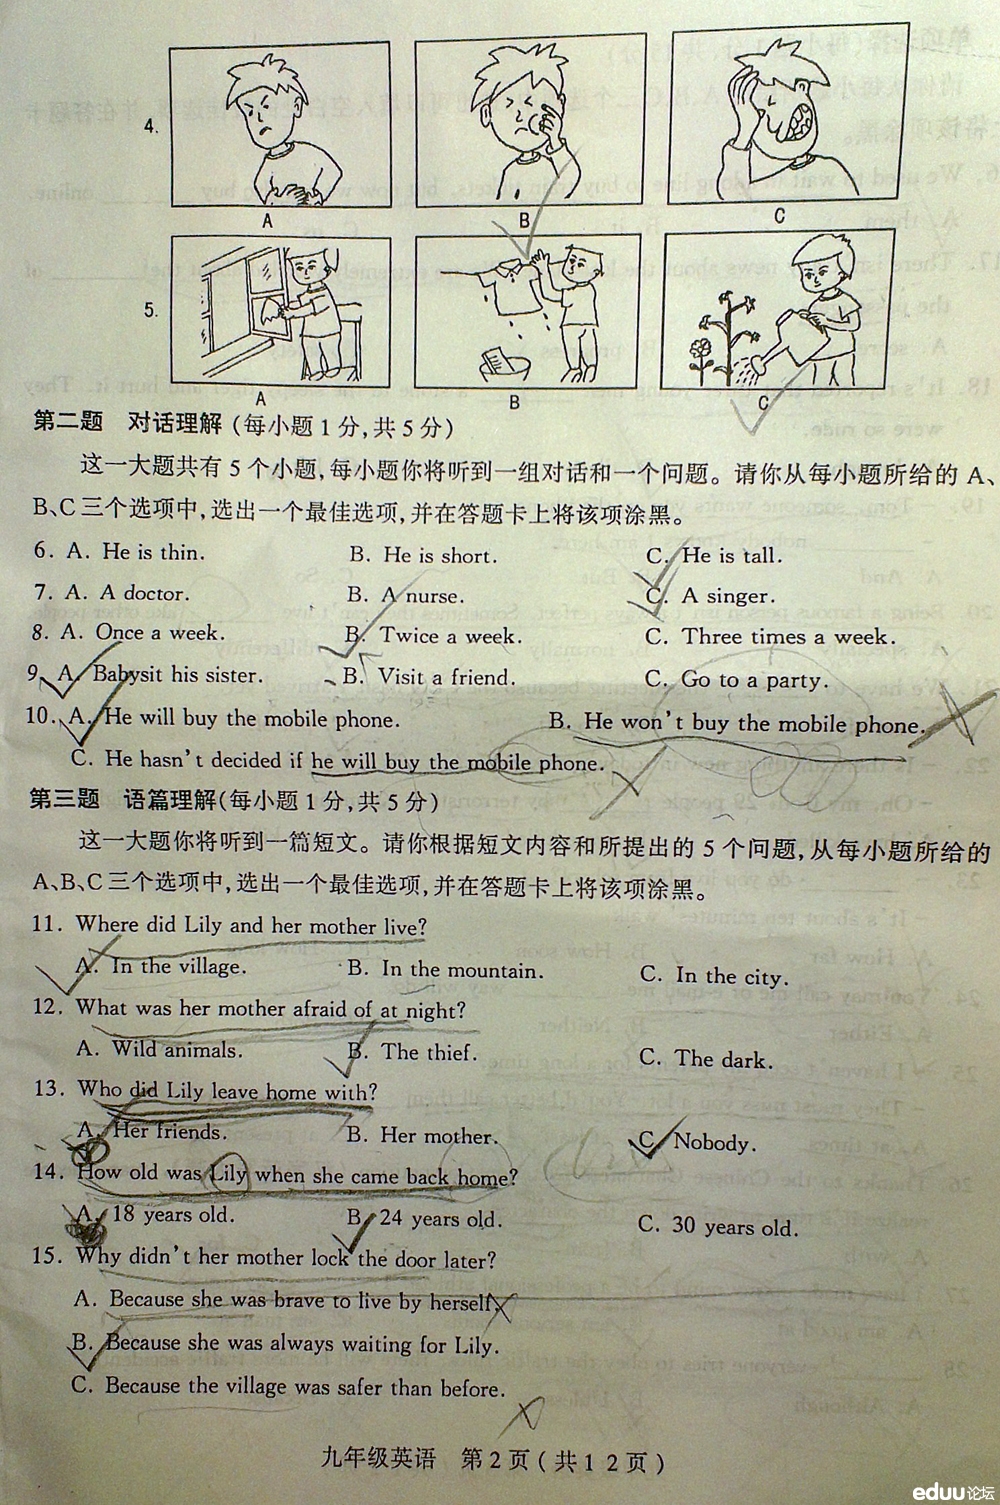 4.
A B C
5.
A B C
第二题 对话理解(每小题1分,共5分)
这一大题共有5个小题,每小题你将听到一组对话和一个问题。请你从每小题所给的A、
B、C三个选项中,选出一个最佳选项,并在答题卡上将该项涂黑。
6. A. He is thin. B. He is short. C. He is tall.
7. A. A doctor. B. A nurse. C. A singer.
8. A. Once a week. B. Twice a week. C. Three times a week.
9. A. Babysit his sister. B. Visit a friend. C. Go to a party.
10. A. He will buy the mobile phone. B. He won't buy the mobile phone.
C. He hasn't decided if he will buy the mobile phone.
第三题 语篇理解(每小题1分,共5分)
这一大题你将听到一篇短文。请你根据短文内容和所提出的5个问题,从每小题所给的
A、B、C三个选项中,选出一个最佳选项,并在答题卡上将该项涂黑。
11. Where did Lily and her mother live?
A. In the village. B. In the mountain. C. In the city.
12. What was her mother afraid of at night?
A. Wild animals. B. The thief. C. The dark.
13. Who did Lily leave home with?
A. Her friends. B. Her mother. C. Nobody.
14. How old was Lily when she came back home?
A. 18 years old. B. 24 years old. C. 30 years old.
15. Why didn't her mother lock the door later?
A. Because she was brave to live by herself.
B. Because she was always waiting for Lily.
C. Because the village was safer than before.
九年级英语 第2页(共12页)
eduu论坛